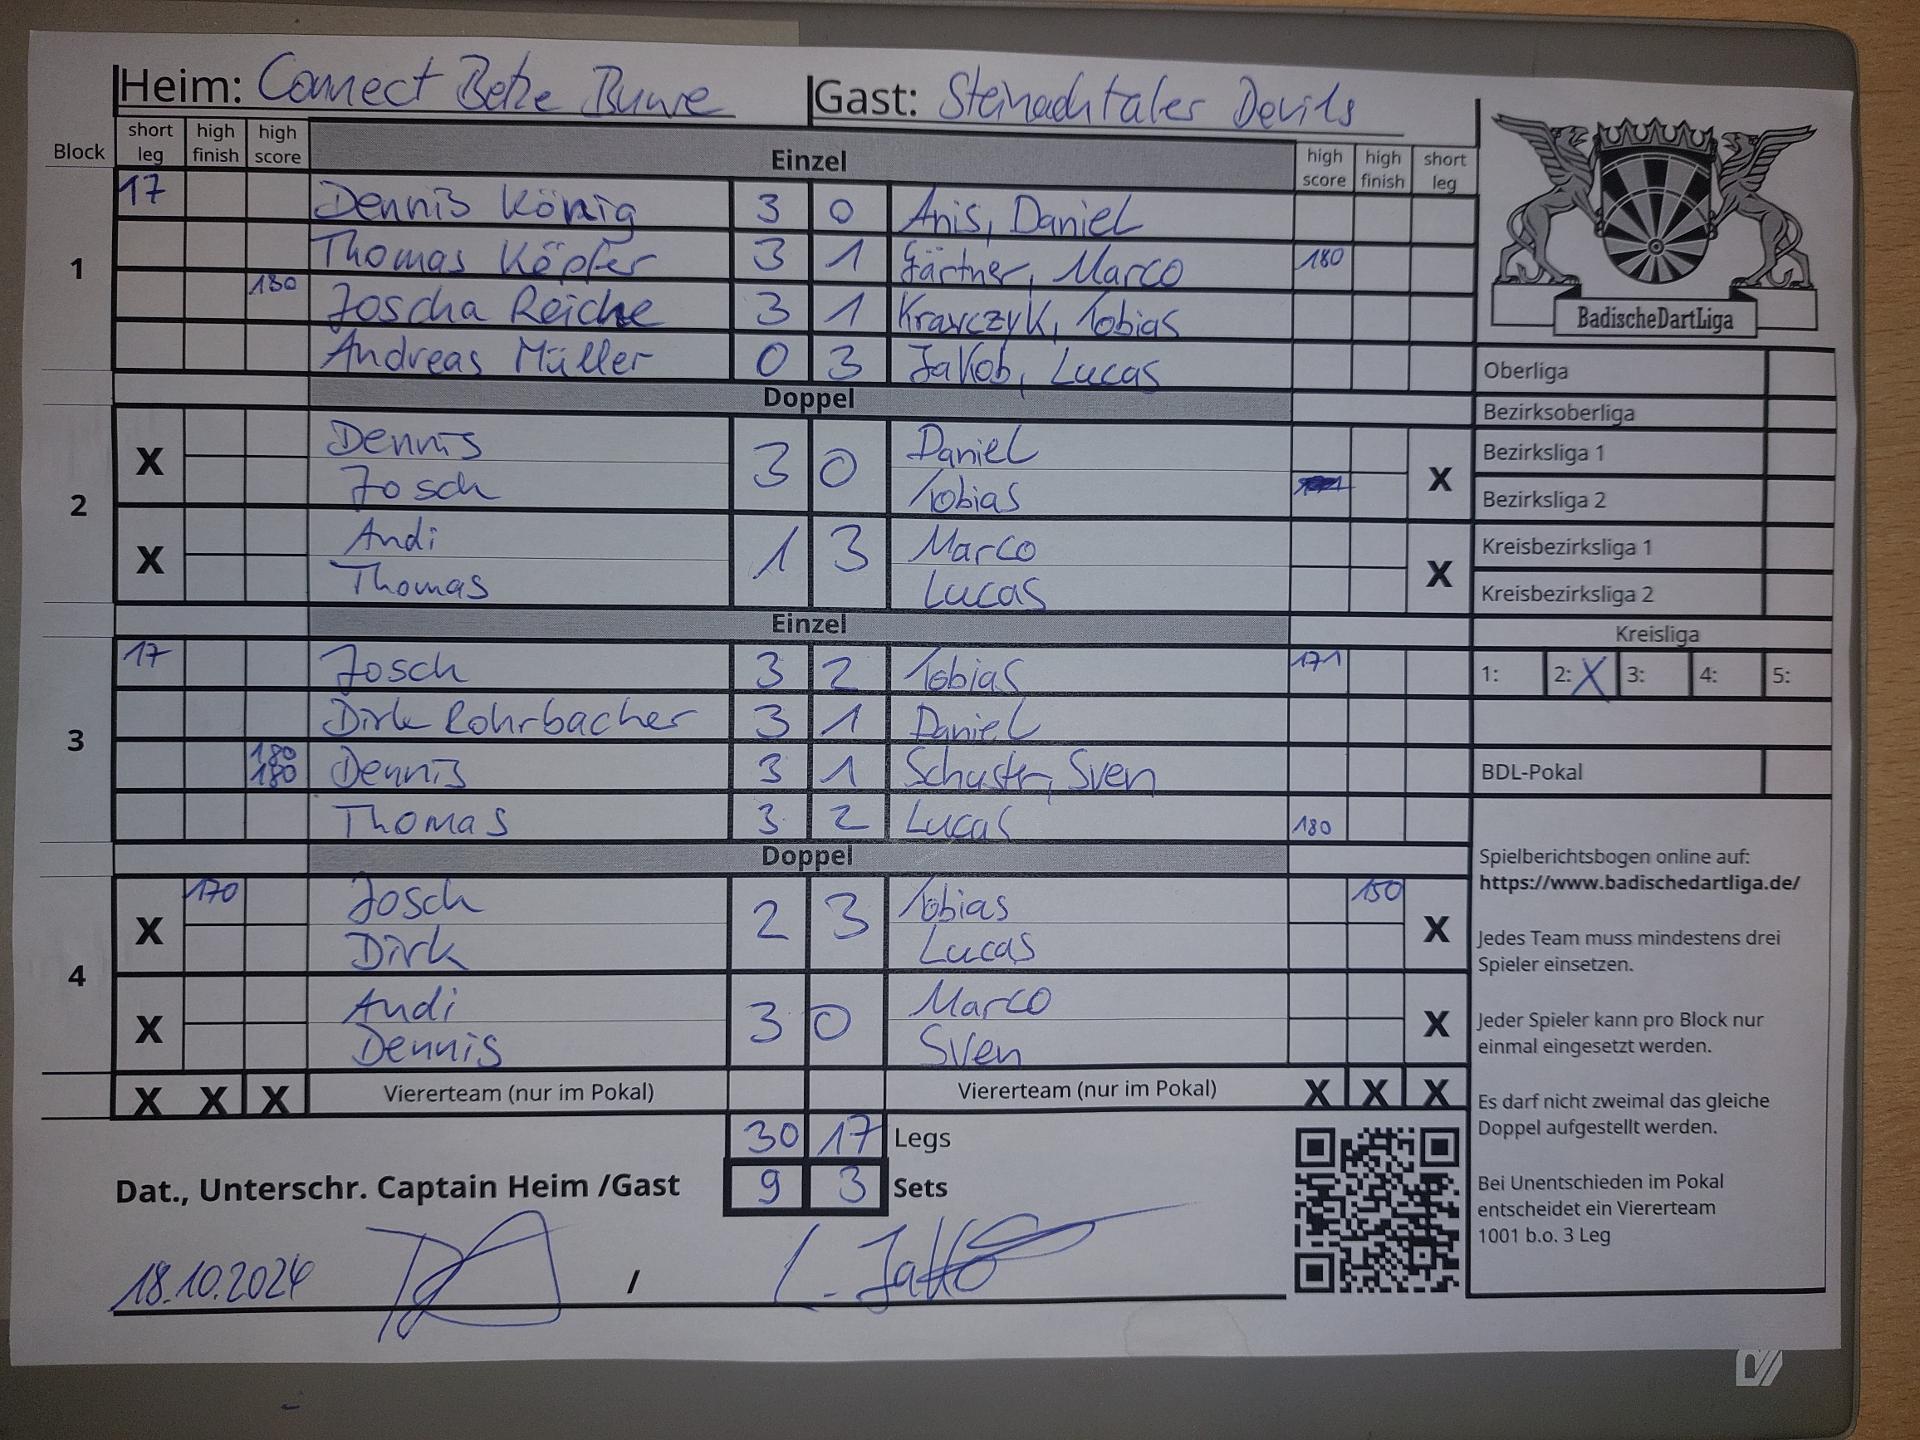 Heim: Connect Betze Buwe Gast: Steinachtaler Devils
Block short leg high finish high score Einzel high score high finish short leg
1
17 Dennis König 3 0 Anis, Daniel
Thomas Köpfer 3 1 Gärtner, Marco 180
180 Joscha Reiche 3 1 Krawczyk, Tobias
Andreas Müller 0 3 Jakob, Lucas
Doppel
2
X Dennis 3 0 Daniel X
Josch Tobias
X Andi 1 3 Marco X
Thomas Lucas
Einzel
3
17 Josch 3 2 Tobias 171
Dirk Rohrbacher 3 1 Daniel
180 180 Dennis 3 1 Schuster, Sven
Thomas 3 2 Lucas 180
Doppel
4
X 170 Josch 2 3 Tobias 150 X
Dirk Lucas
X Andi 3 0 Marco X
Dennis Sven
X X X Vierterteam (nur im Pokal) Vierterteam (nur im Pokal) X X X
30 17 Legs
Dat., Unterschr. Captain Heim /Gast 9 3 Sets
18.10.2024 / L. Jakob
BadischeDartLiga
Oberliga
Bezirksoberliga
Bezirksliga 1
Bezirksliga 2
Kreisbezirksliga 1
Kreisbezirksliga 2
Kreisliga
1: 2: X 3: 4: 5:
BDL-Pokal
Spielberichtsbogen online auf:
https://www.badischedartliga.de/
Jedes Team muss mindestens drei
Spieler einsetzen.
Jeder Spieler kann pro Block nur
einmal eingesetzt werden.
Es darf nicht zweimal das gleiche
Doppel aufgestellt werden.
Bei Unentschieden im Pokal
entscheidet ein Viererteam
1001 b.o. 3 Leg